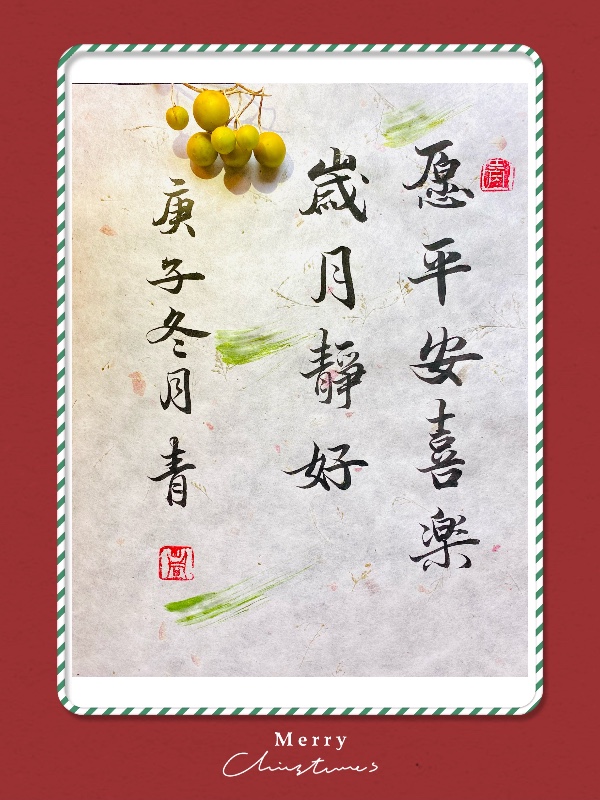 愿平安喜楽
歲月靜好
庚子冬月 青
Merry
Christmas